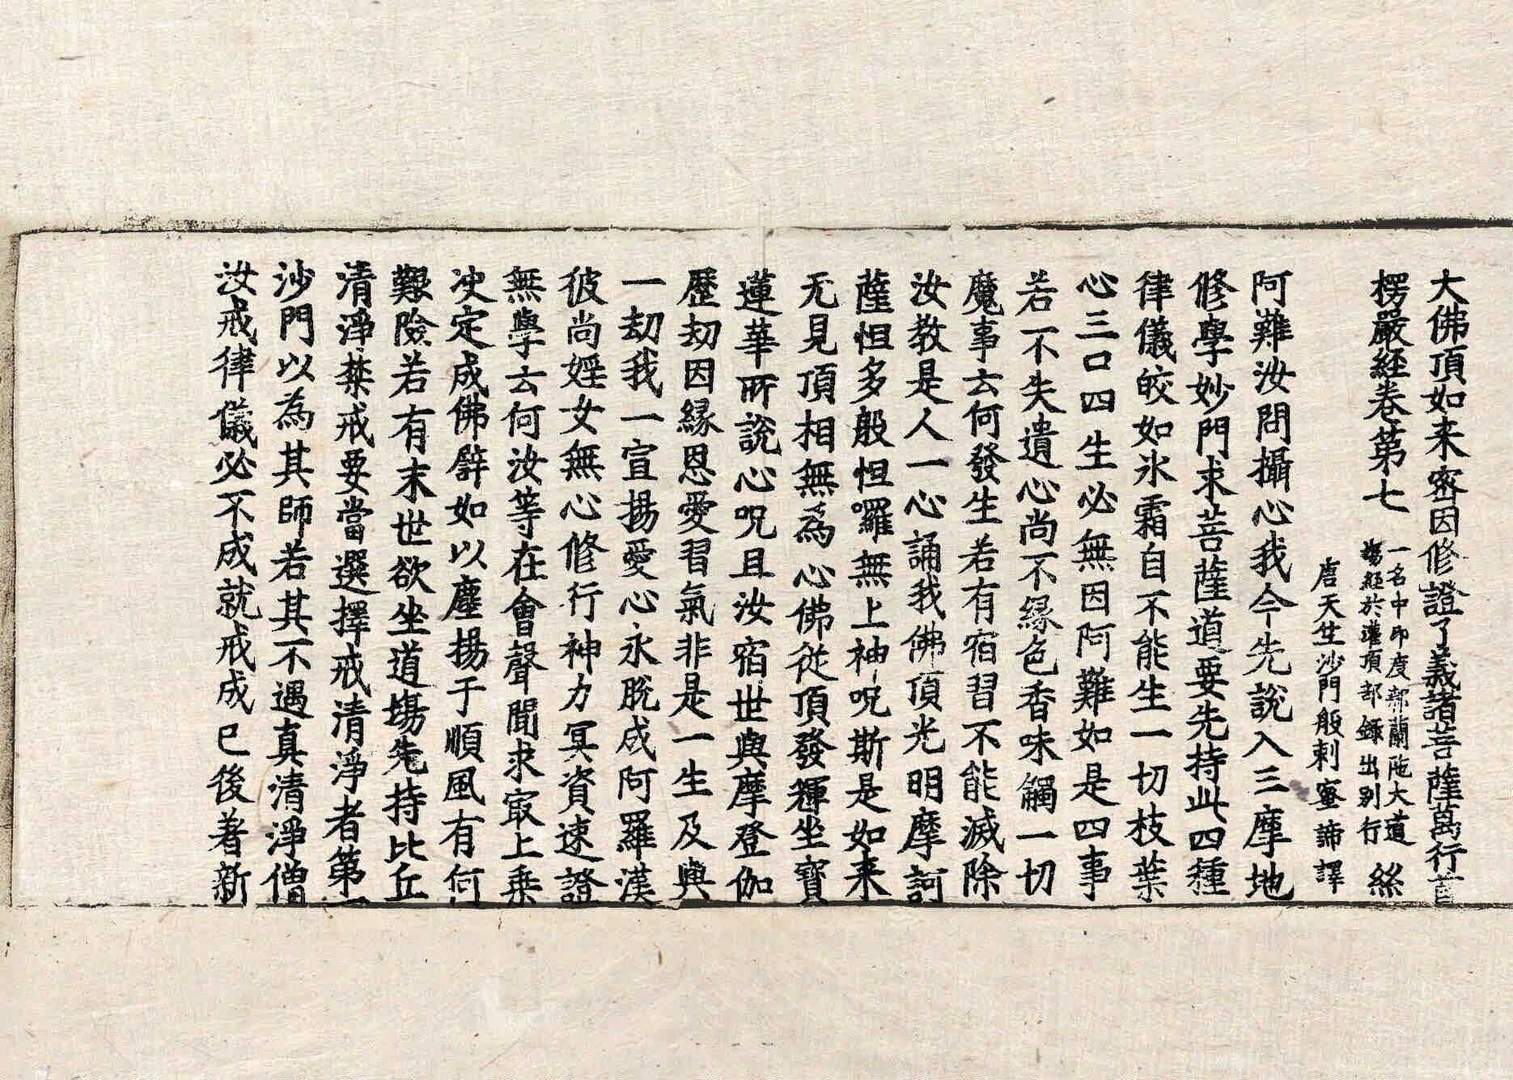 大佛頂如来密因修證了義諸菩薩萬行首
楞嚴経卷第七
一名中印度那蘭陁大道
塲經於灌頂部録出别行
絲
唐天竺沙門般剌蜜諦譯
阿難汝問攝心我今先說入三摩地
修學妙門求菩薩道要先持此四種
律儀皎如氷霜自不能生一切枝葉
心三口四生必無因阿難如是四事
若不失遺心尚不縁色香味觸一切
魔事云何發生若有宿習不能滅除
汝教是人一心誦我佛頂光明摩訶
薩怛多般怛囉無上神呪斯是如来
无見頂相無為心佛従頂發輝坐寶
蓮華所說心呪且汝宿世與摩登伽
歷劫因縁恩愛習氣非是一生及與
一劫我一宣揚愛心永脫成阿羅漢
彼尚婬女無心修行神力冥資速證
無學云何汝等在會聲聞求最上乗
决定成佛譬如以塵揚于順風有何
艱險若有末世欲坐道塲先持比丘
清淨禁戒要當選擇戒清淨者第一
沙門以為其師若其不遇真清淨僧
汝戒律儀必不成就戒成已後著新